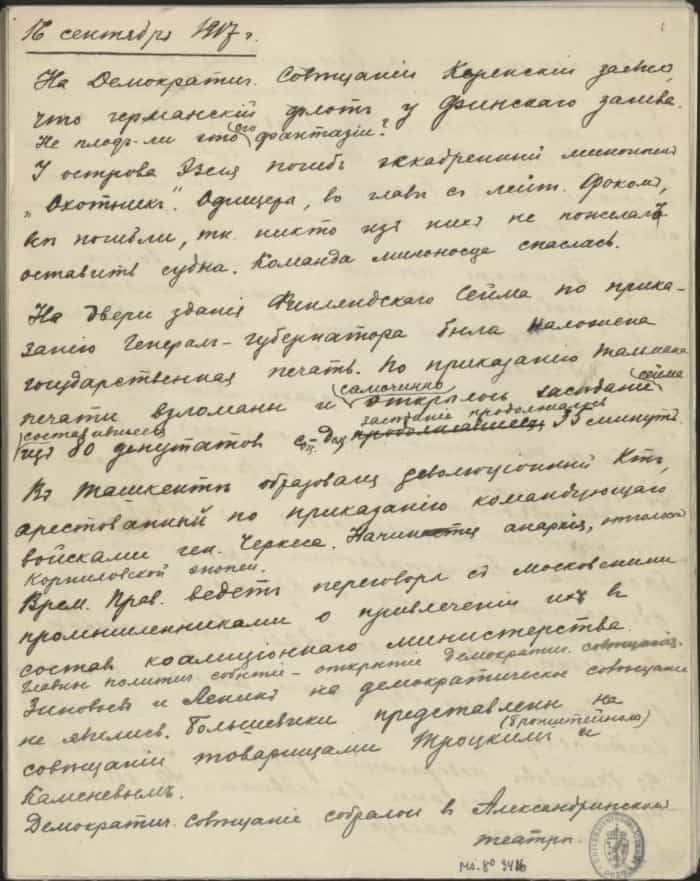 16 сентября 1917 г.
На Демократич. Совѣщаніи Керенскій заявил,
что германскій флотъ у Финскаго залива.
Не плодъ-ли это его фантазіи?
У острова Эзеля погибъ эскадренный миноносец
„Охотникъ". Офицера, во главѣ съ лейт. Фокомъ,
всѣ погибли, т.к. никто изъ нихъ не пожелалъ
оставить судна. Команда миноносца спаслась.
На двери зданія Финляндскаго Сейма по прика-
занію Генерал-губернатора была наложена
государственная печать. По приказанію Тальмана
печати взломаны и самочинно открылось засѣданіе сейма
составившееся заседаніе продолжалось
изъ 80 депутатов с.-д. 35 минутъ.
Въ Ташкентѣ образовался революціонный К-тъ,
арестованный по приказанію командующаго
войсками ген. Черкеса. Начин анархія, отголоски
Корниловской эпопеи.
Врем. Прав. ведетъ переговоры съ московскими
промышленниками о привлеченіи ихъ въ
состав коалиціоннаго министерства.
Главное политич. событіе – открытіе демократич. совѣщанія.
Зиновьевъ и Ленинъ на демократическое совѣщаніе
не явились. Большевики представлены на
совѣщаніи товарищами Троцкимъ (Бронштейномъ) и
Каменевымъ.
Демократич. Совѣщаніе собралось в Александринскомъ
театрѣ.
Ms. 8° 3426